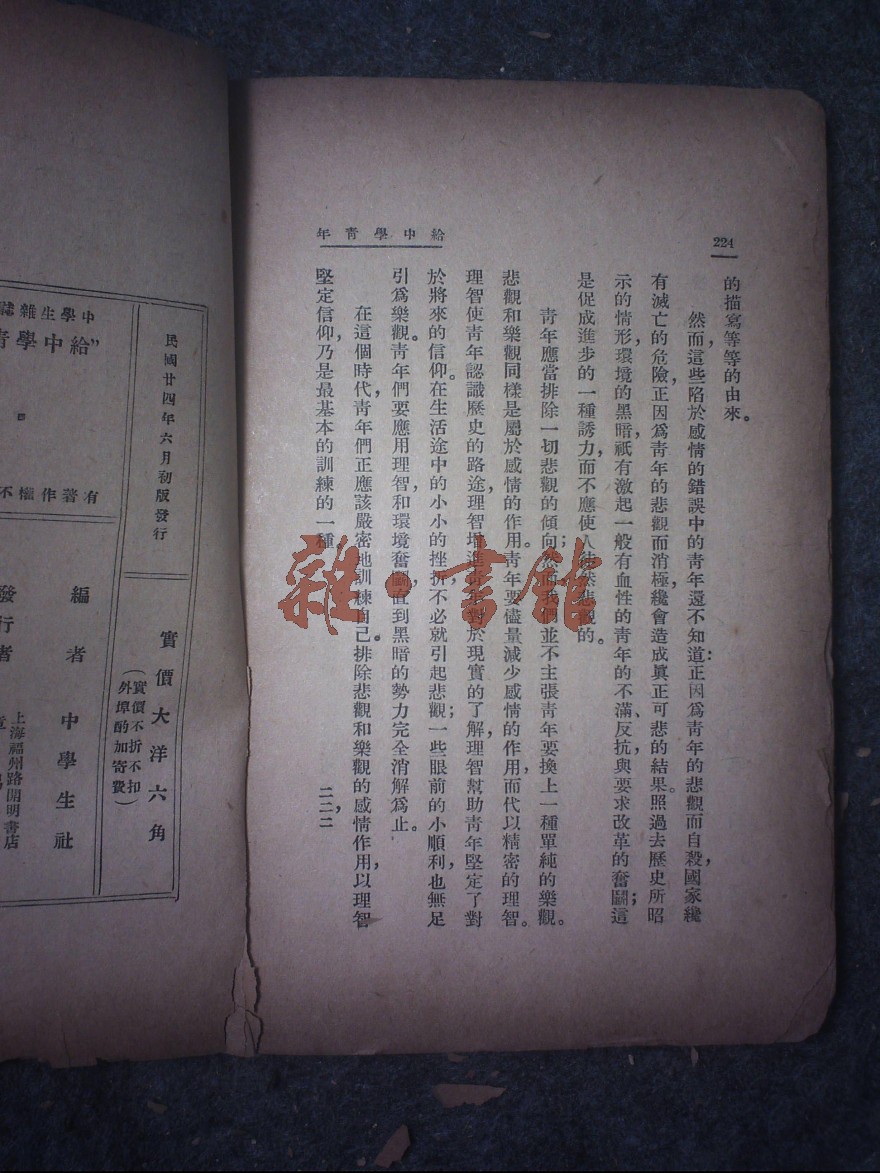 給中學青年
224
的描寫等等的由來。
然而,這些陷於感情的錯誤中的青年還不知道:正因為青年的悲觀而自殺,國家纔
有滅亡的危險,正因為青年的悲觀而消極,纔會造成眞正可悲的結果。照過去歷史所昭
示的情形,環境的黑暗,祇有激起一般有血性的青年的不滿、反抗,與要求改革的奮鬭;這
是促成進步的一種誘力,而不應使人徒然悲觀的。
青年應當排除一切悲觀的傾向;然而我們並不主張青年要換上一種單純的樂觀。
悲觀和樂觀同樣是屬於感情的作用。青年要儘量減少感情的作用,而代以精密的理智。
理智使青年認識歷史的路途,理智增進青年對於現實的了解,理智幫助青年堅定了對
於將來的信仰。在生活途中的小小的挫折,不必就引起悲觀;一些眼前的小順利,也無足
引為樂觀。青年們要應用理智,和環境奮鬭,直到黑暗的勢力完全消解為止。
在這個時代,青年們正應該嚴密地訓練自己。排除悲觀和樂觀的感情作用,以理智
堅定信仰,乃是最基本的訓練的一種。
二二,二
雜·書館
民國廿四年六月初版發行
實價大洋六角
(實價不折不扣
外埠酌加寄費)
中學生雜誌
"給中學青
有著作權不
編者 中學生社
發行者 章
上海福州路開明書店